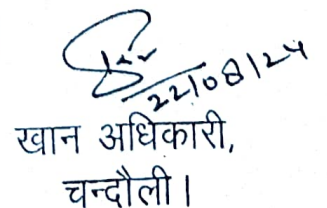 22/08/24
खान अधिकारी,
चन्दौली।